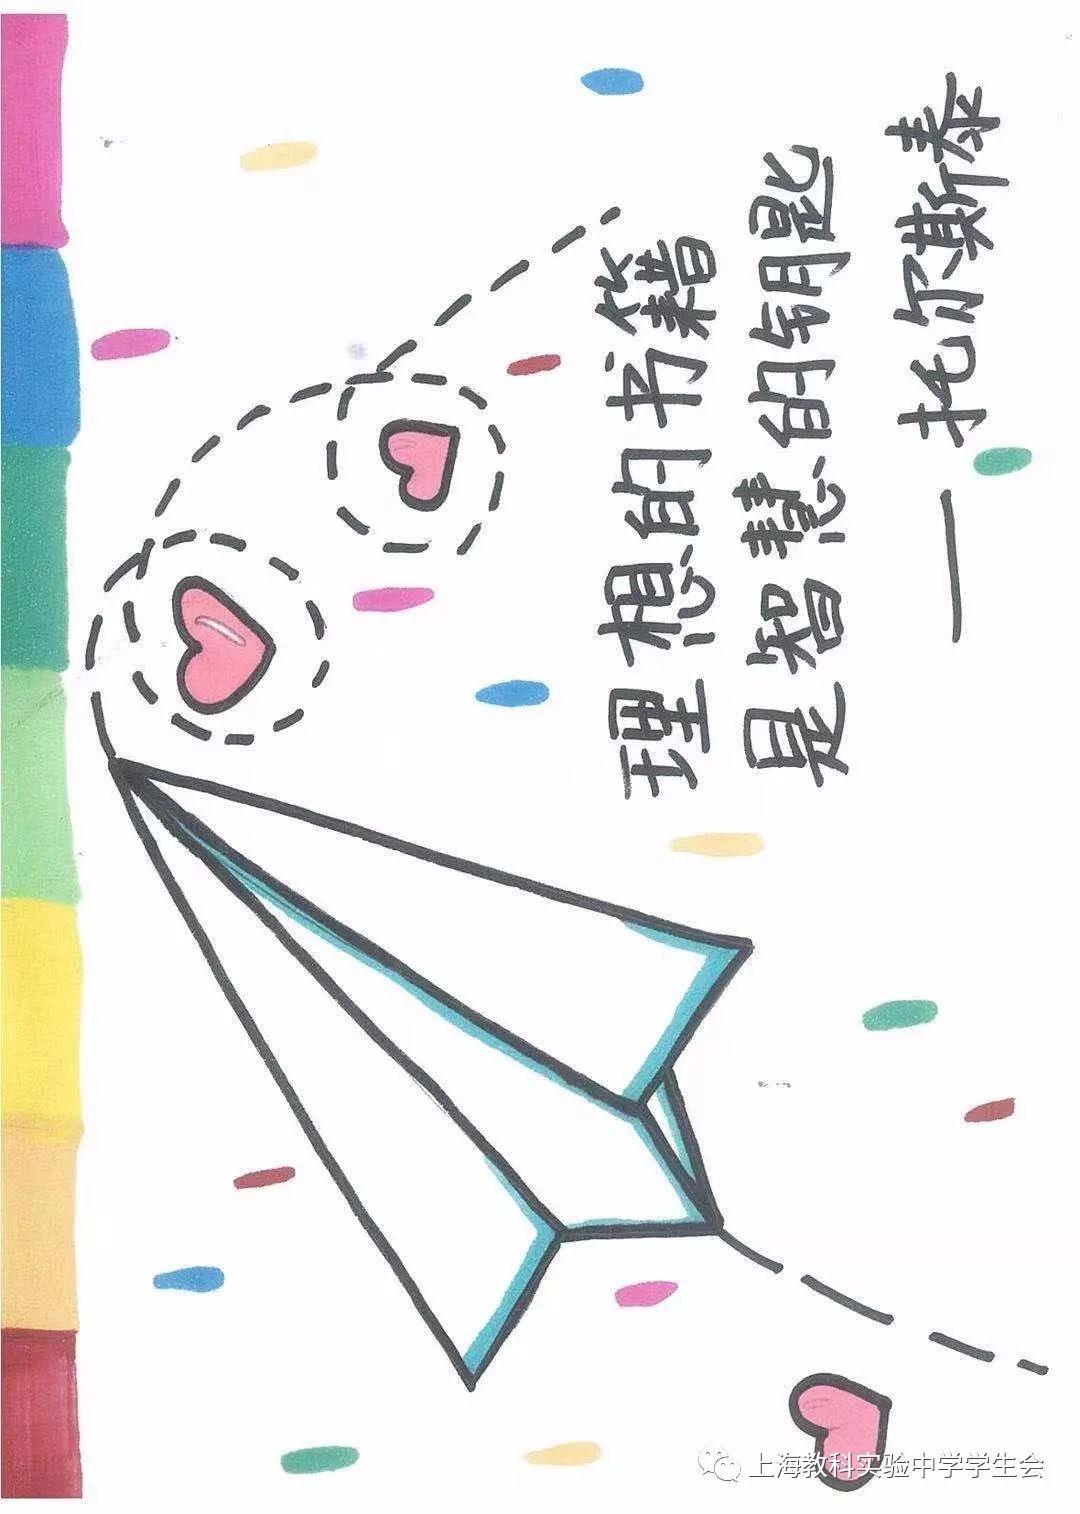 理想的书籍
是智慧的钥匙
——托尔斯泰
上海教科实验中学学生会